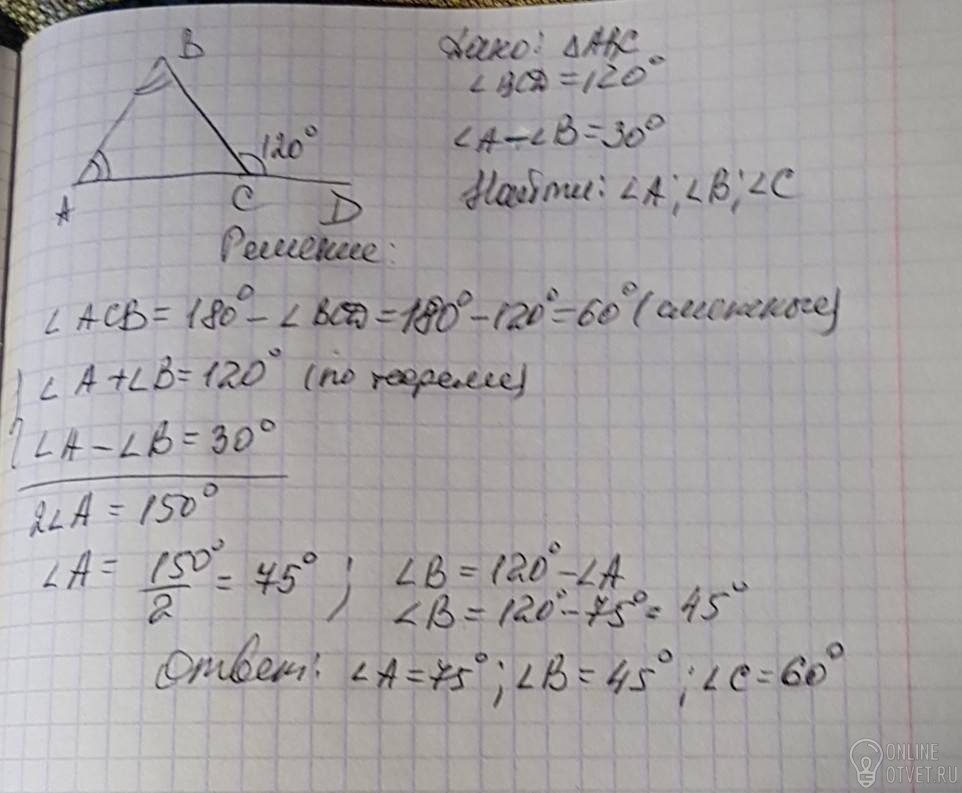 B
Дано: △ABC
∠BCD = 120°
120°
∠A - ∠B = 30°
A
C
D
Найти: ∠A; ∠B; ∠C
Решение:
∠ACB = 180° - ∠BCD = 180° - 120° = 60° (смежные)
∠A + ∠B = 120° (по теореме)
∠A - ∠B = 30°
2∠A = 150°
∠A = 150°/2 = 75° ; ∠B = 120° - ∠A
∠B = 120° - 75° = 45°
Ответ: ∠A = 75°; ∠B = 45°; ∠C = 60°
ONLINE
OTVET.RU